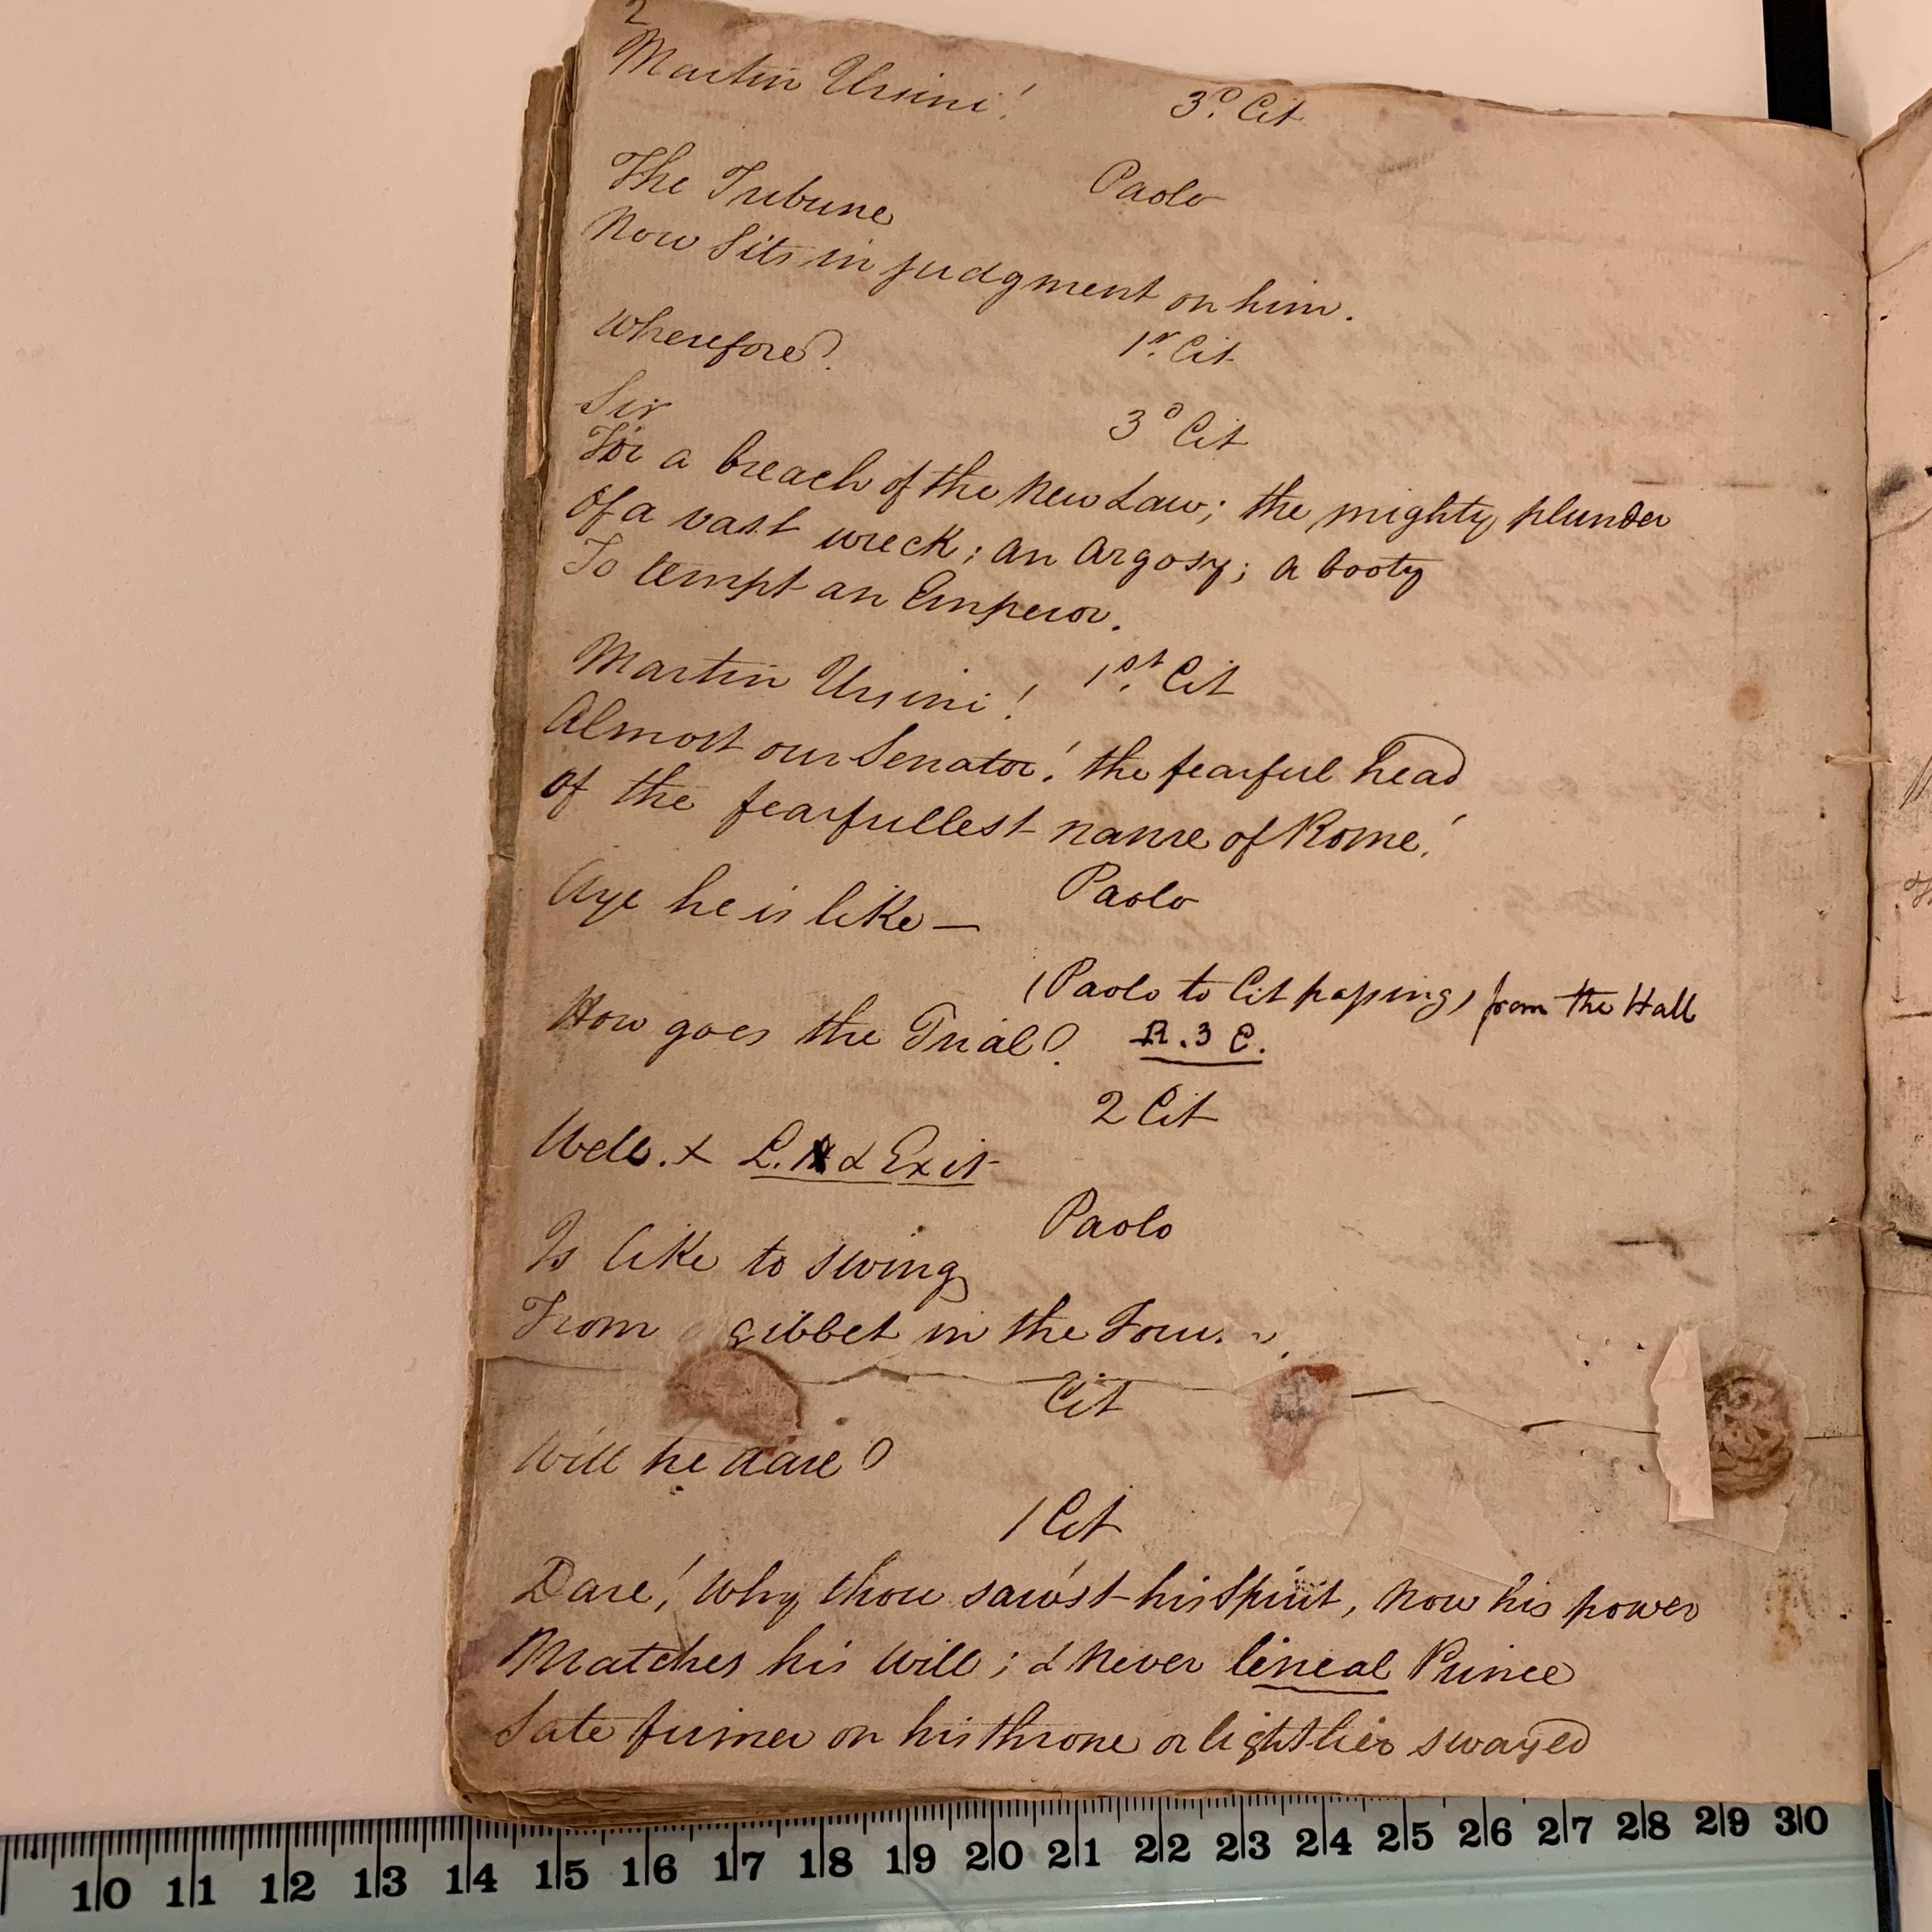 2
3d. Cit
Martin Ursini!
Paolo
The Tribune
Now Sits in judgment on him.
1st. Cit
Wherefore?
3d Cit
Sir
For a breach of the New Law; the mighty plunder
Of a vast wreck; an Argosy; a booty
To tempt an Emperor.
1st. Cit
Martin Ursini!
Almost our Senator! the fearful head
of the fearfullest name of Rome!
Paolo
Aye he is like —
(Paolo to Cit passing) from the Hall
How goes the Trial? R. 3 E.
2 Cit
Well. x L. & Exit
Paolo
Is like to swing
From gibbet in the
Cit
Will he dare?
1 Cit
Dare! Why thou saw'st his Spirit, Now his power
Matches his Will; & Never lineal Prince
Sate firmer on his throne or lightlier swayed
10 11 12 13 14 15 16 17 18 19 20 21 22 23 24 25 26 27 28 29 30